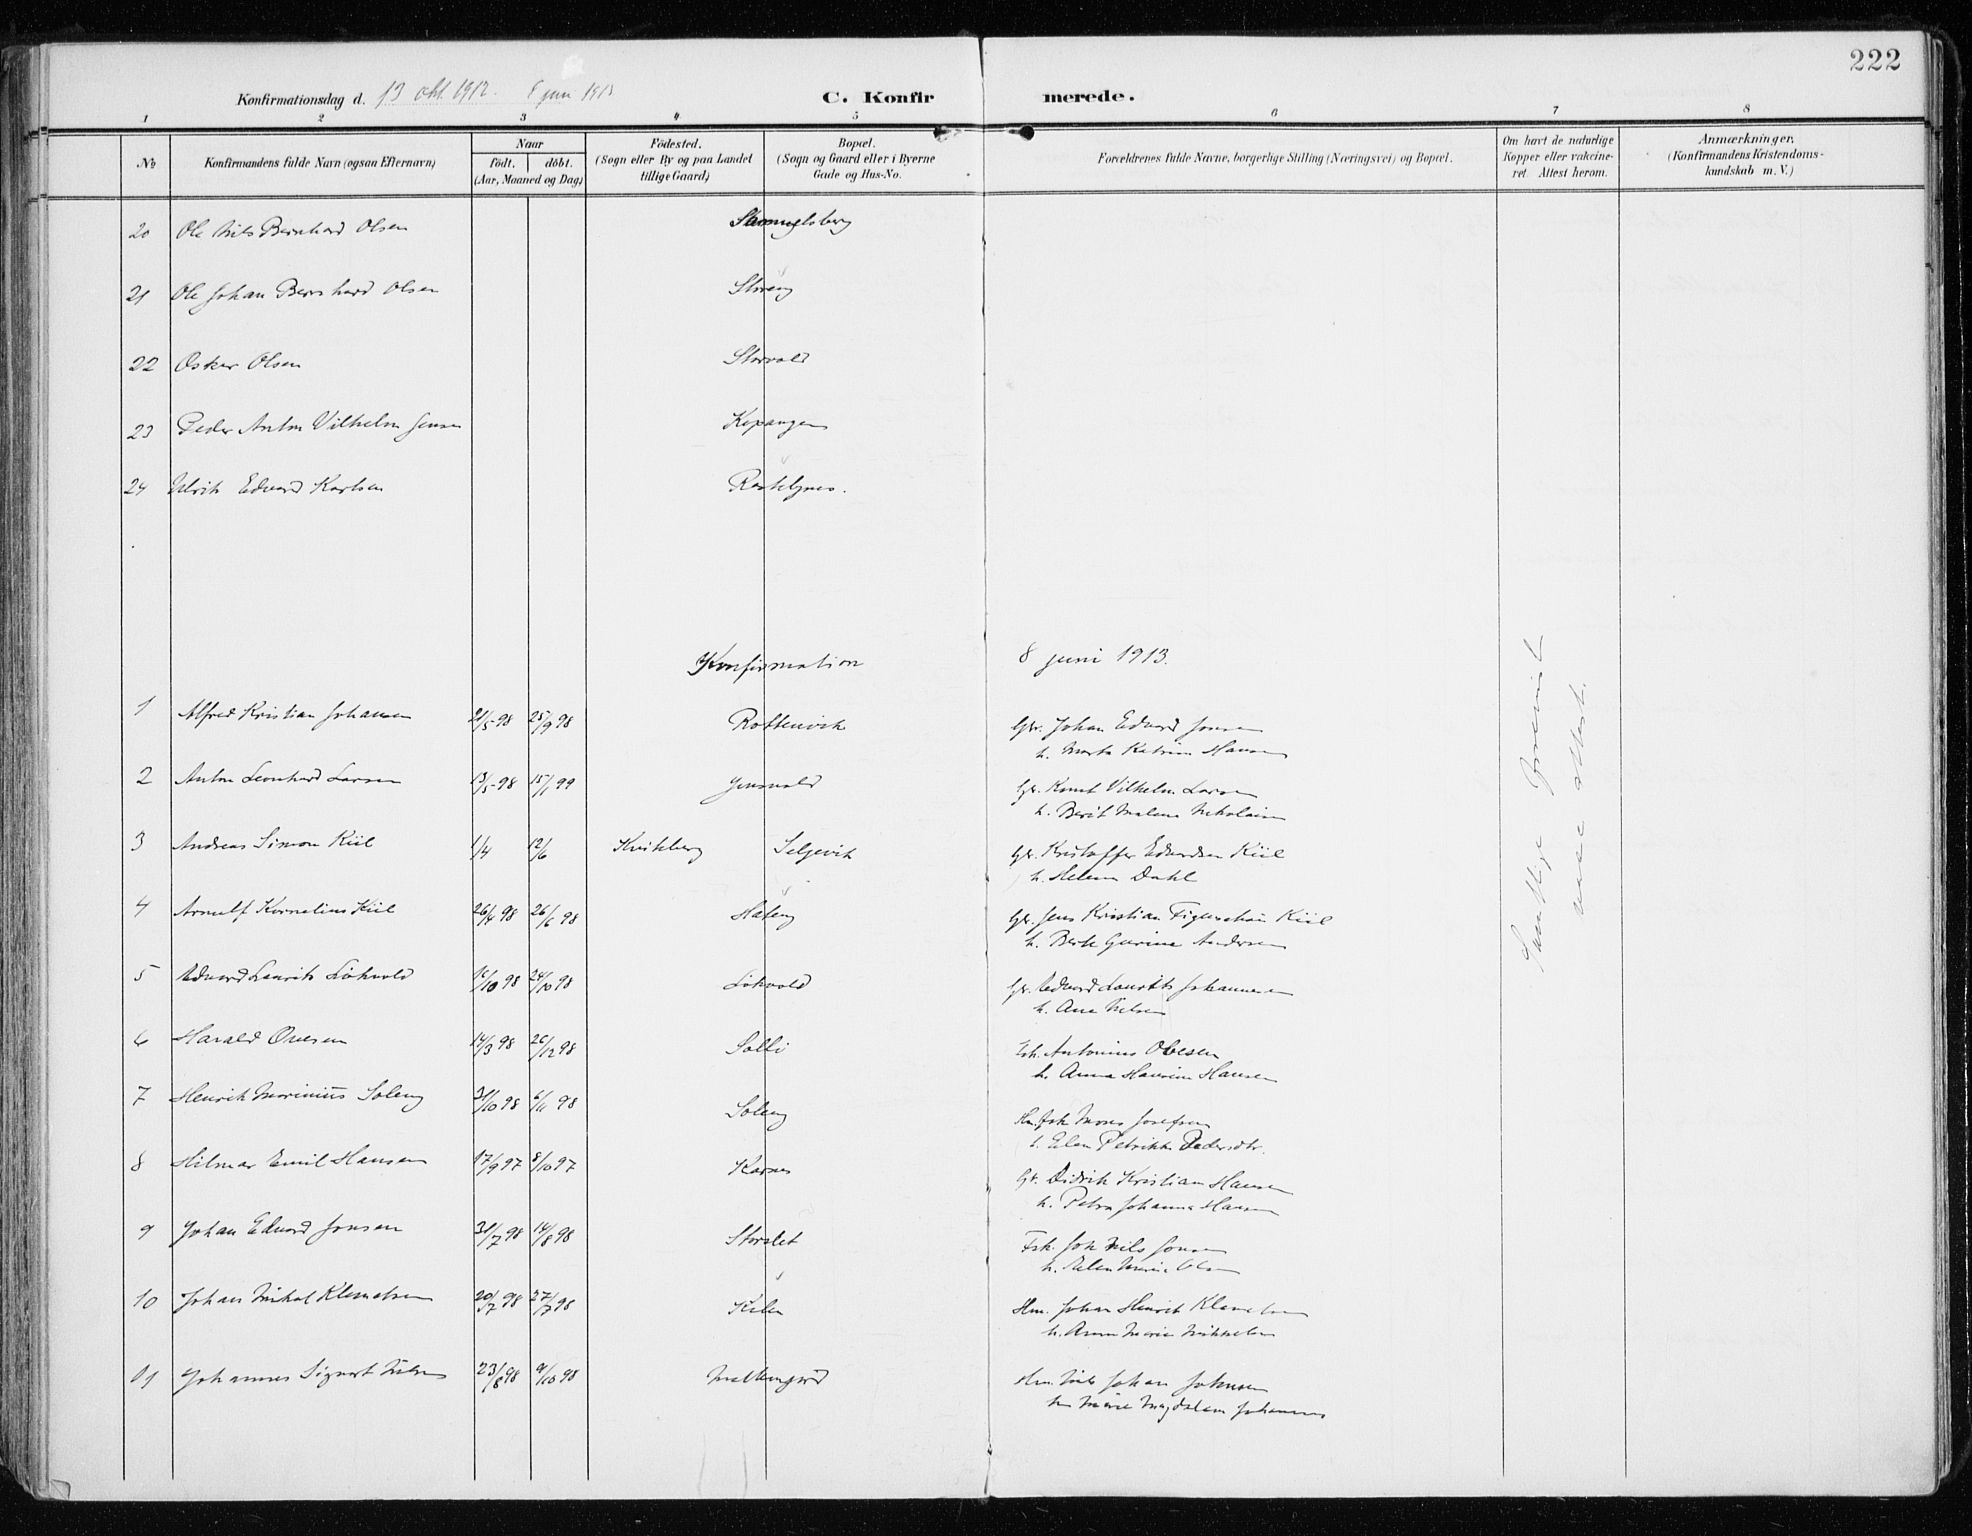 222
Konfirmationsdag d. 13 okt. 1912. 8 juni 1913
C. Konfirmerede.
1 2 3 4 5 6 7 8
No
Konfirmandens fulde Navn (ogsaa Efternavn)
Naar
født. døbt.
(Aar, Maaned og Dag)
Fødested.
(Sogn eller By og paa Landet
tillige Gaard)
Bopæl.
(Sogn og Gaard eller i Byerne
Gade og Hus-No.
Forældrenes fulde Navne, borgerlige Stilling (Næringsvei) og Bopæl.
Om havt de naturlige
Kopper eller vakcine-
ret. Attest herom.
Anmærkninger.
(Konfirmandens Kristendoms-
kundskab m. V.)
20 Ole Nils Bernhard Olsen
21 Ole Johan Bernhard Olsen Storeng
22 Oskar Olsen Storvold
23 Peder Anton Vilhelm Jensen Kopangen
24 Ulrik Edvard Karlsen
Konfirmation 8 juni 1913.
1 Alfred Kristian Johansen 21/5-98 25/9 98 Rottenvik Gbr. Johan Edvard Jonsen
h. Marta Katrine Hansen
2 Anton Leonhard Larsen 13/5-98 15/1 99 Jensvold Gbr. Knut Vilhelm Larsen
h. Berit Malena Nikolaisen
3 Andreas Simon Kiil 1/4 12/6 Kvikberg Seljevik Gbr. Kristoffer Edvardsen Kiil
h. Helena Dahl
4 Arnulf Kornelius Kiil 26/4 98 26/6 98 Gbr. Jens Kristian Figenschou Kiil
h. Gurine Andersen
5 Edvard Laurits Løkvold 16/10 98 24/10 98 Løkvold Gbr. Edvard Laurits Johannesen
h. Ane Nilsen
6 Harald Ovesen 14/3 98 26/12 98 Solli Fsk. Antonius Ovesen
h. Anna Hansen
7 Henrik Marinius Soleng 31/10 98 6/11 98 Soleng Mons Josefsen
h. Elen Petrikke Pedersdtr.
8 Hilmar Emil Hansen 17/9 97 8/10 97 Karnes Gbr. Didrik Kristian Hansen
h. Petra Johanna Hansen
9 Johan Edvard Jonsen 31/7 98 14/8 98 Storslet Fsk. Joh Nils Jonsen
h. Elen Marie Olsen
10 Johan Mikal Klemetsen 20/7 98 27/7 98 Hm. Johan Henrik Klemetsen
h. Anna Marie Mikkelsen
11 Johannes Sigurt Nilsen 23/8 98 9/10 98 Hm. Nils Johan Johnsen
h. Marie Magdalena Johannes
Samtlige
Attest.